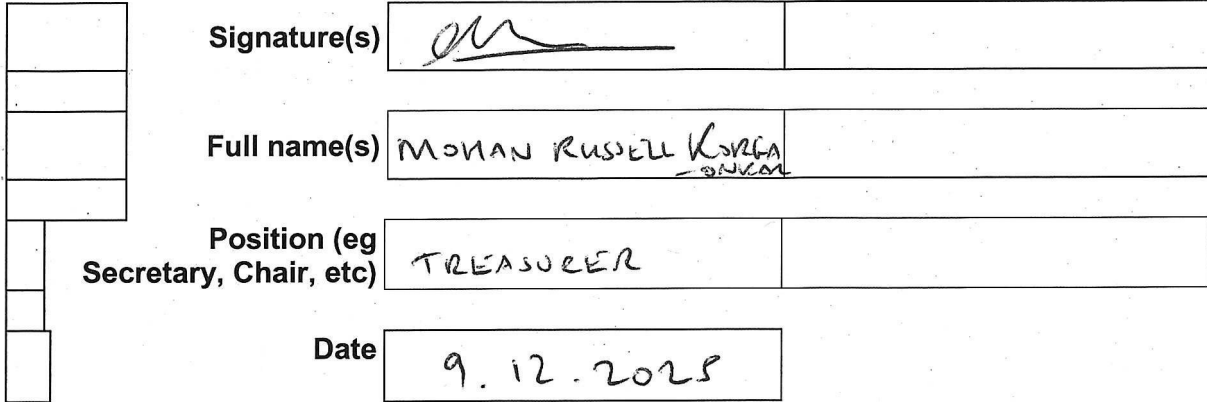 Signature(s)
Full name(s) MOHAN RUSSELL KORGA
-ONKAR
Position (eg
Secretary, Chair, etc) TREASURER
Date 9.12.2025